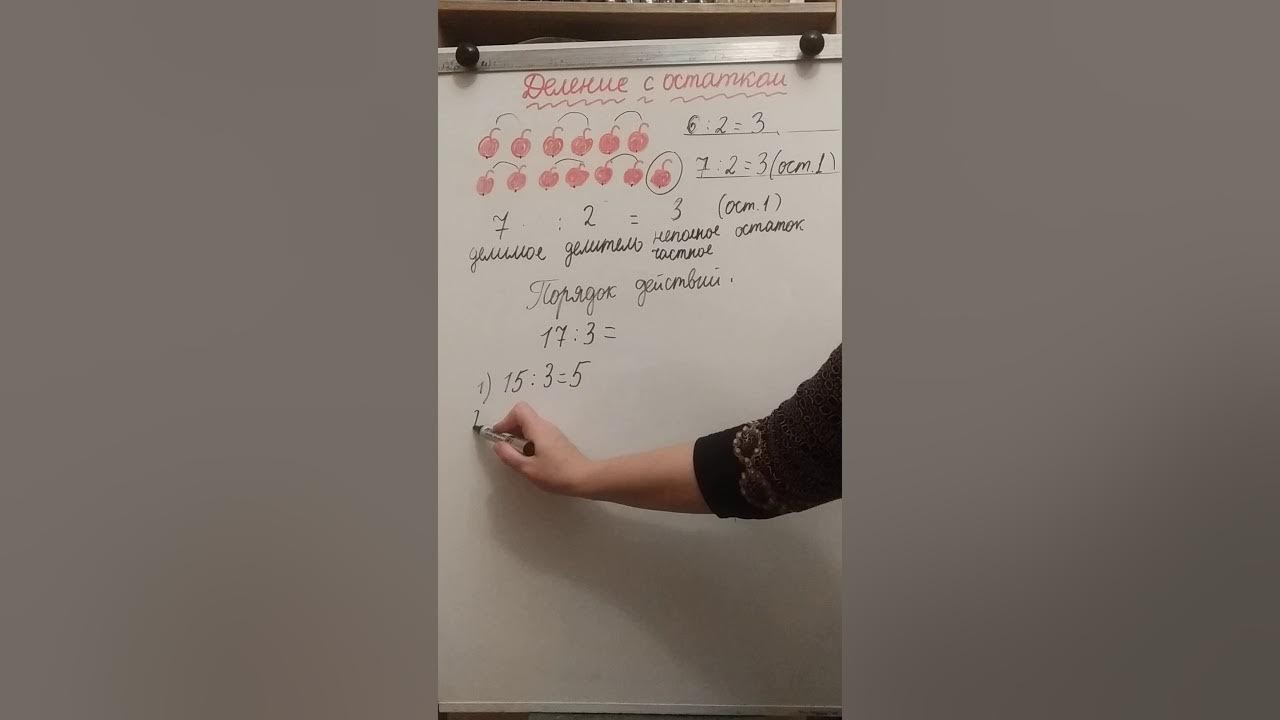 Деление с остатком
6 : 2 = 3
7 : 2 = 3 (ост. 1)
7 : 2 = 3 (ост. 1)
делимое делитель неполное остаток
частное
Порядок действий.
17 : 3 =
1) 15 : 3 = 5